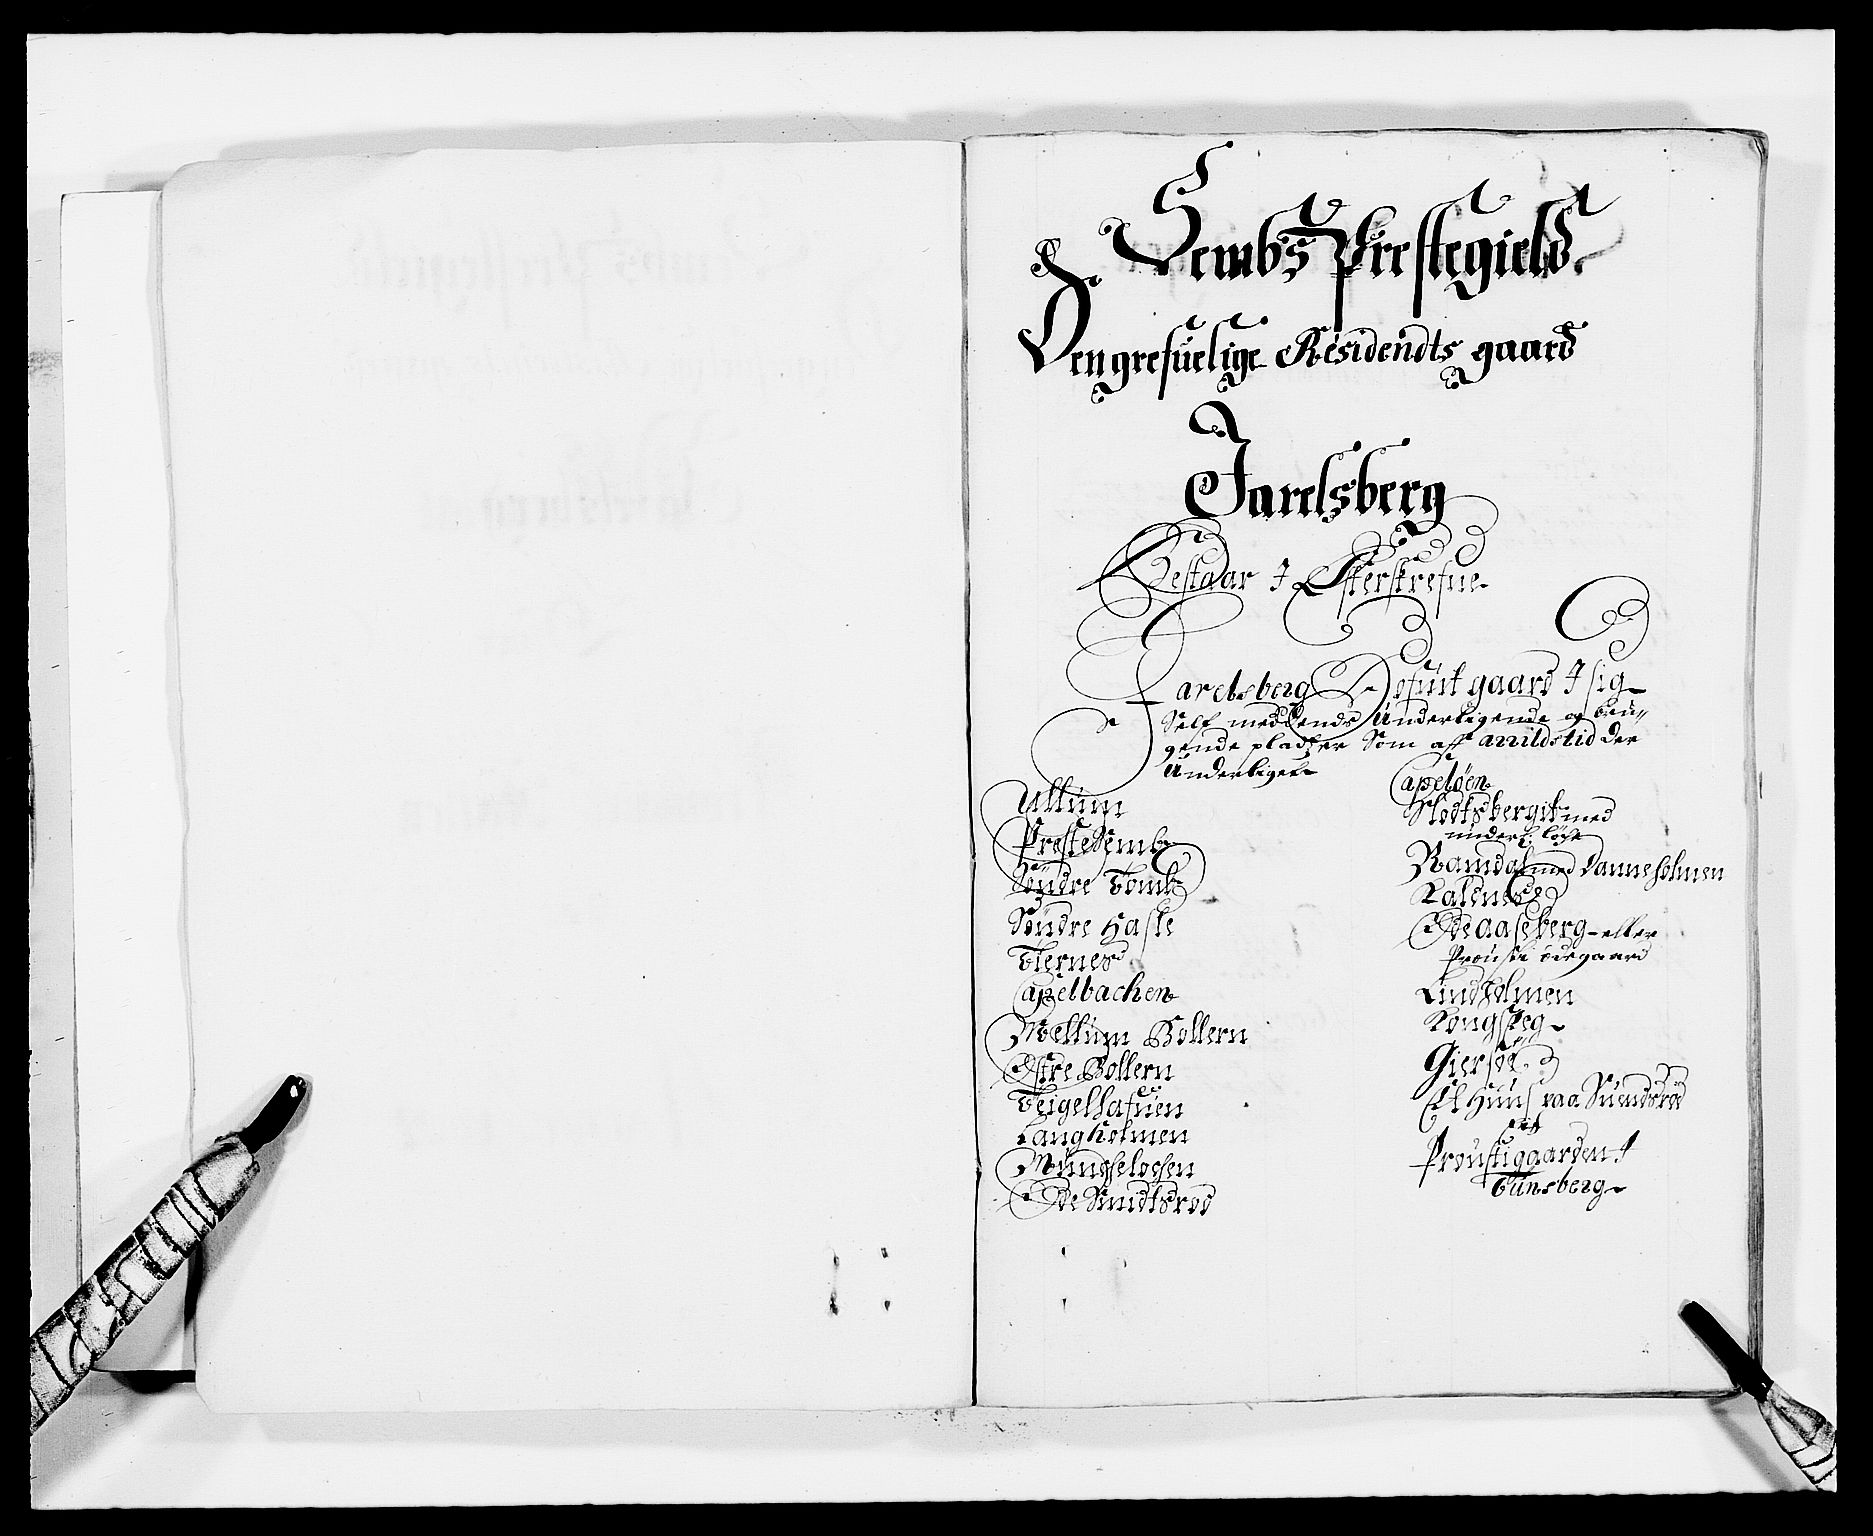 Sembs Prestegield
Den grefuelige Residendts gaard
Jarelsberg
Bestaar J Efterskrefne
Jarelsberg Hofuit gaard J sig
Self med Dends Underligende og bru„
gende pladzer Som aff arrilds tid der
Underligene
Ullum
Preste Semb
Søndre Tomb
Søndre Hasle
Tiernes
Capelbachen
Mellum Bollern
Østre Bollern
Teigelhafuen
Langholmen
Munchelochen
Øde Smidtsrød
Capeløen
Slodts bergit med
underl: løche
Ramdal med Danneholmen
Kaldnes
Øde aaseberg eller
Prousti ødegaard
Lindholmen
Kongseg
Giersøe
Et Huus paa Suendsrød
og
Proustigaarden J
Tunsberg